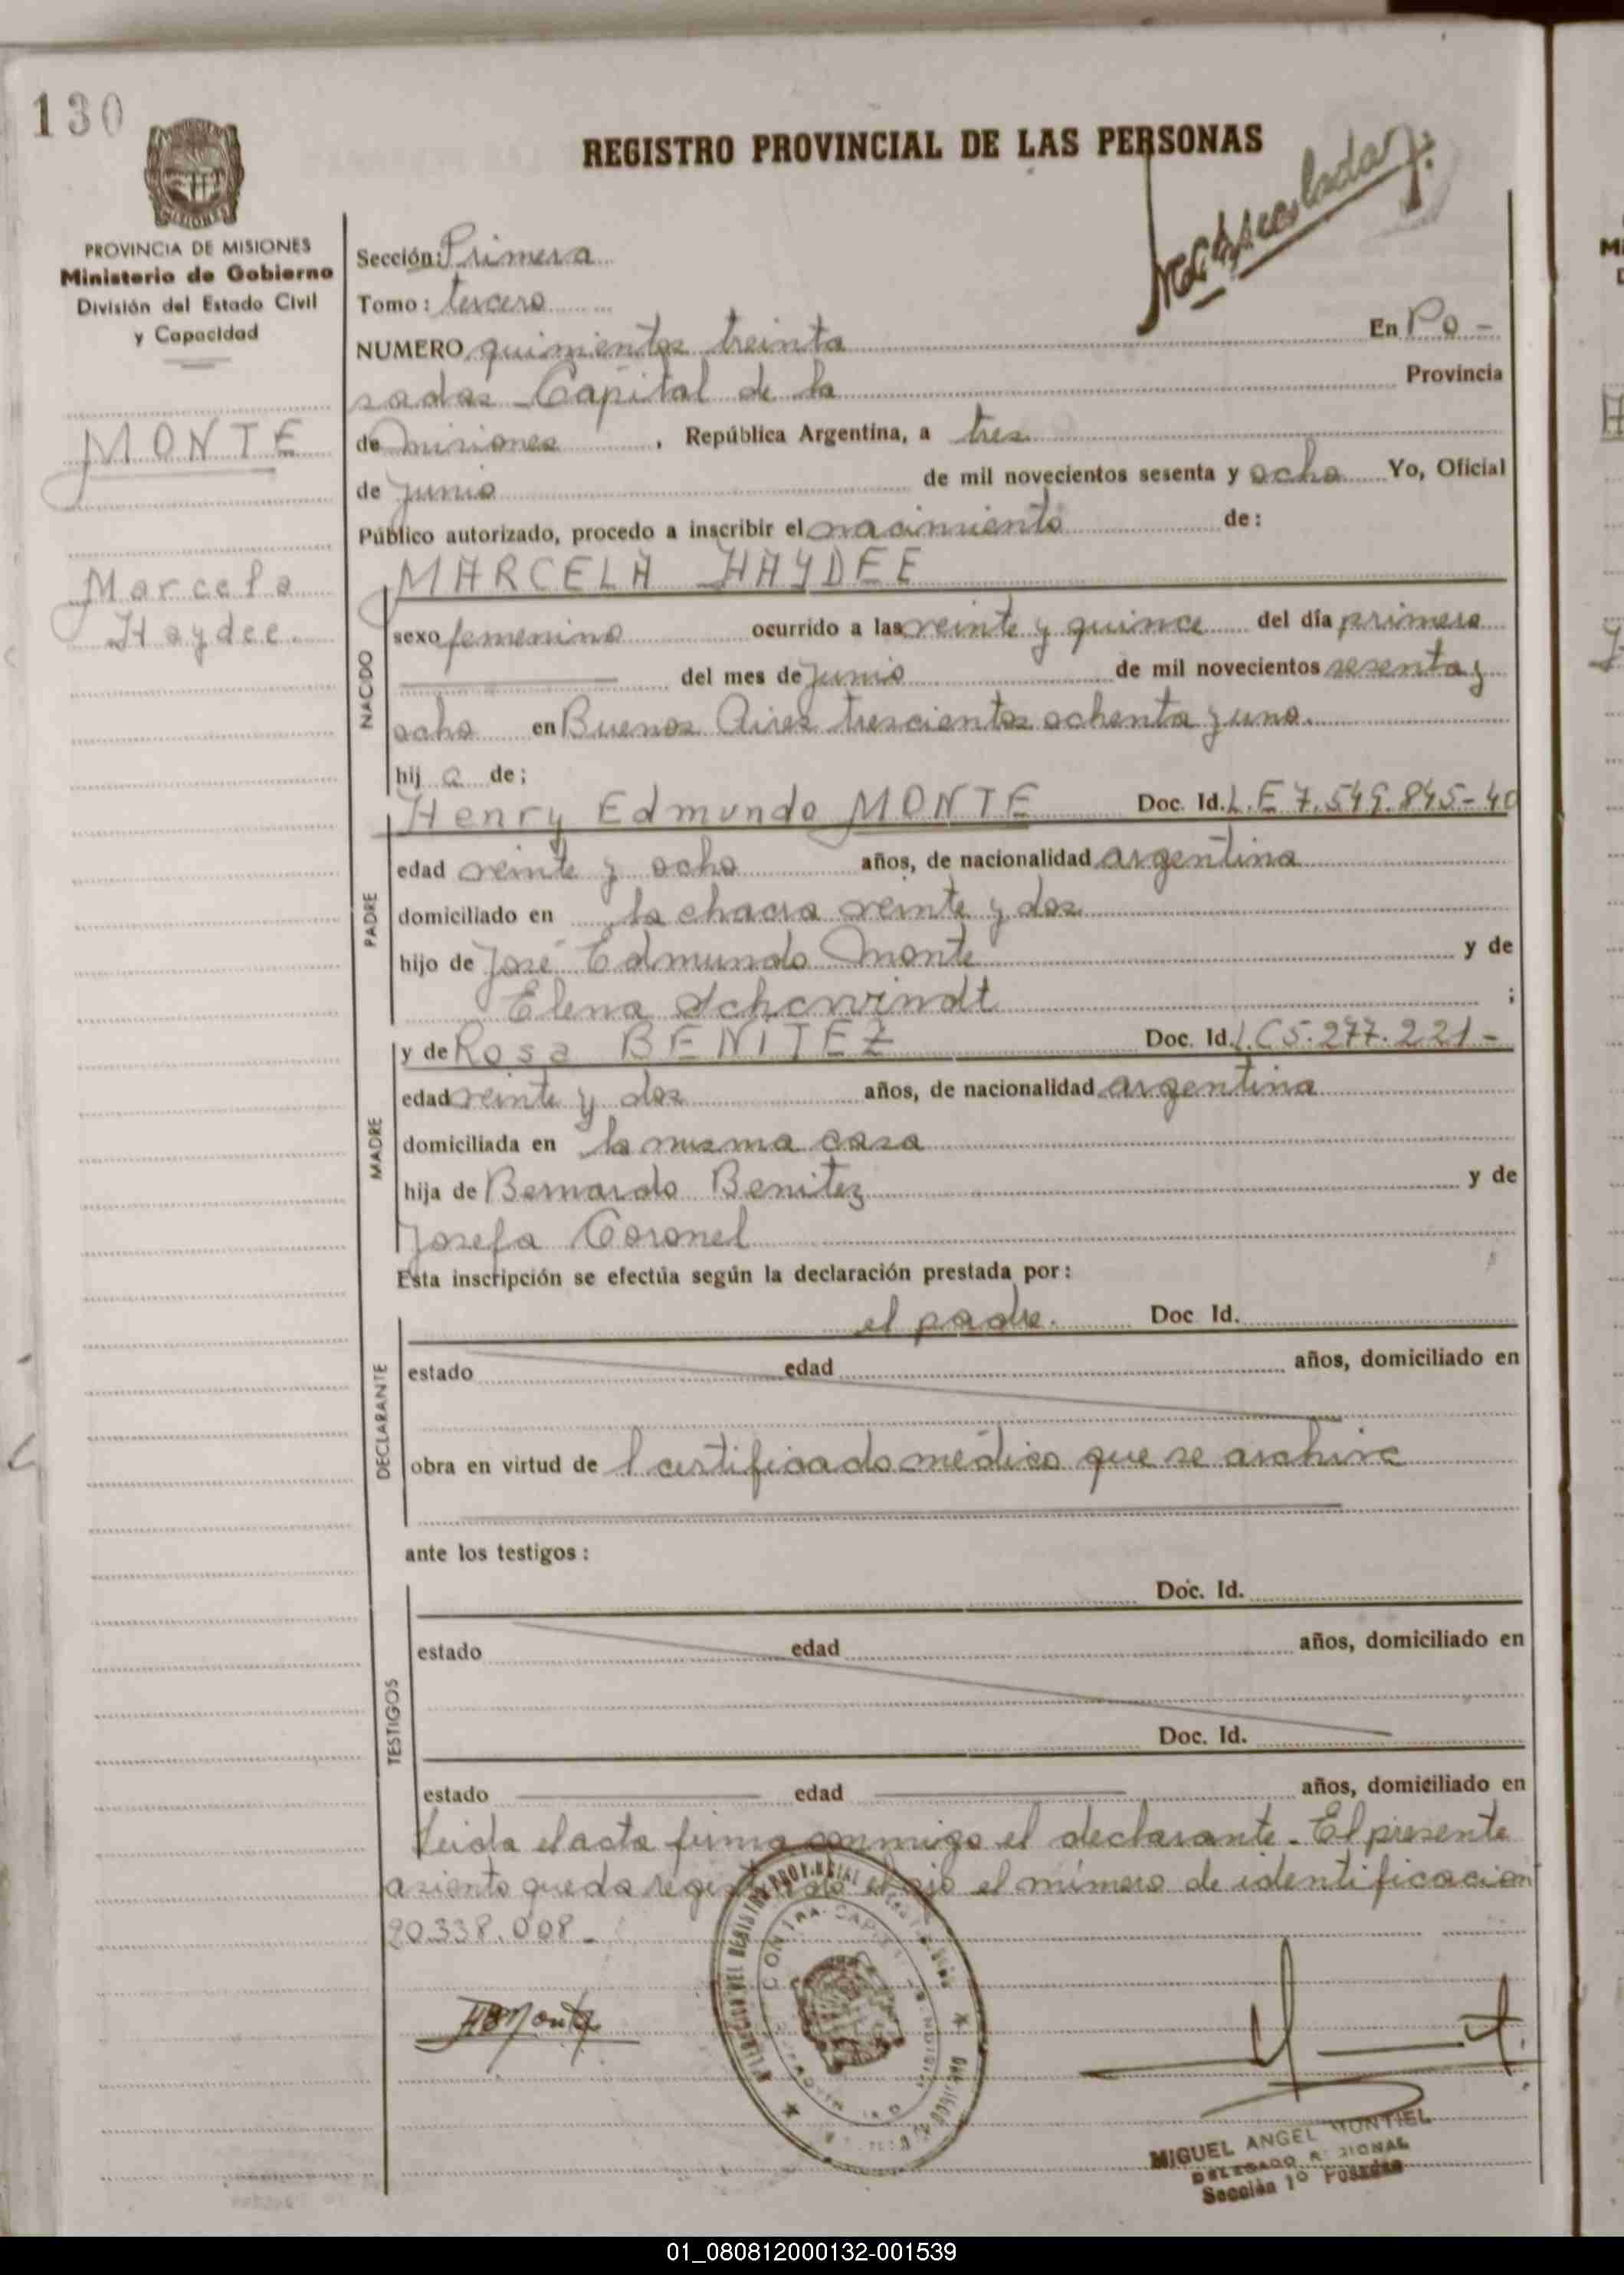 130
REGISTRO PROVINCIAL DE LAS PERSONAS
MISIONES
PROVINCIA DE MISIONES
Ministerio de Gobierno
División del Estado Civil
y Capacidad
MONTE
Marcela
Haydee.
Sección: Primera
Tomo: tercero
NUMERO quinientos treinta En Po-
sadas Capital de la Provincia
de misiones, República Argentina, a tres
de junio de mil novecientos sesenta y ocho Yo, Oficial
Público autorizado, procedo a inscribir el nacimiento de:
NACIDO
MARCELA HAYDEE
sexo femenino ocurrido a las veinte y quince del día primero
del mes de junio de mil novecientos sesenta y
ocho en Buenos Aires trescientos ochenta y uno.
hij a de;
PADRE
Henry Edmundo MONTE Doc. Id. L.E 7.549.845-40
edad veinte y ocho años, de nacionalidad argentina
domiciliado en la chacra veinte y dos
hijo de José Edmundo Monte y de
Elena ;
MADRE
y de Rosa BENITEZ Doc. Id. L.C 5.277.221-
edad veinte y dos años, de nacionalidad argentina
domiciliada en la misma casa
hija de Bernardo Benitez y de
Josefa Coronel
Esta inscripción se efectúa según la declaración prestada por:
DECLARANTE
el padre. Doc. Id.
estado edad años, domiciliado en
obra en virtud de l certificado médico que se archiva
ante los testigos:
TESTIGOS
Doc. Id.
estado edad años, domiciliado en
Doc. Id.
estado edad años, domiciliado en
Leida el acta firma conmigo el declarante. El presente
asiento queda el número de identificación
20.338.008.-
MIGUEL ANGEL MONTIEL
DELEGADO REGIONAL
Sección 1º Posadas
01_080812000132-001539